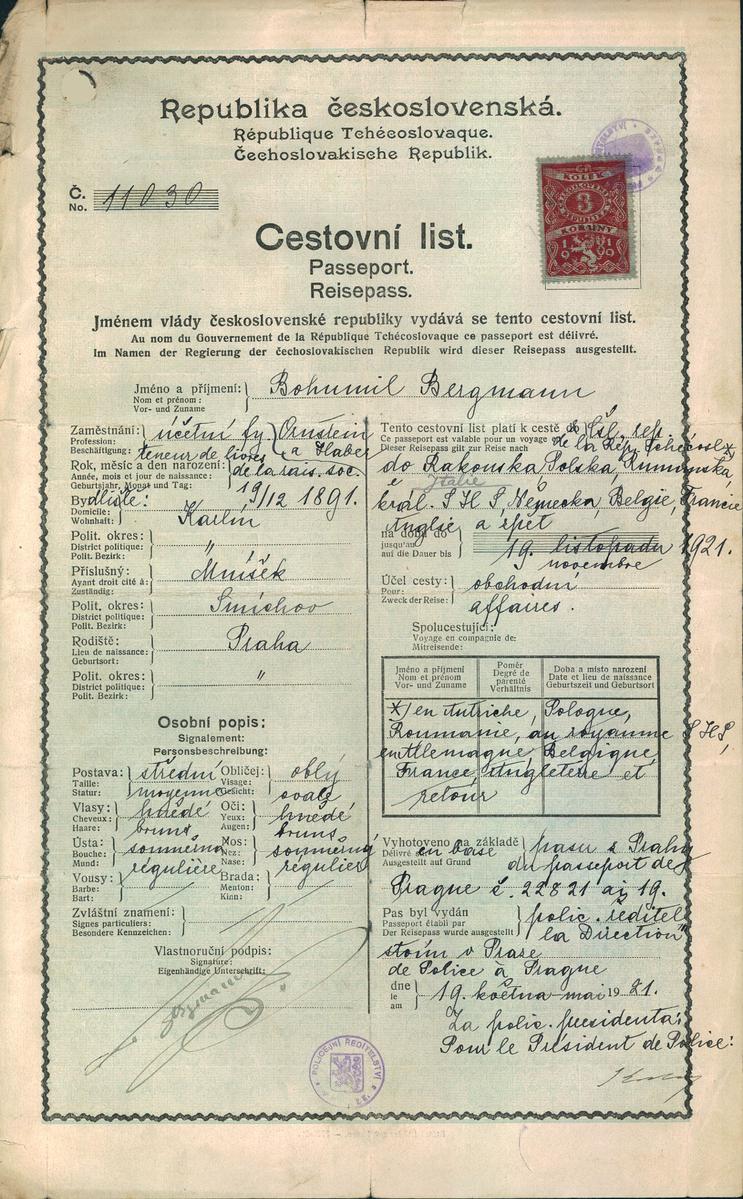 Republika československá.
République Tchécoslovaque.
Čechoslovakische Republik.
Č.
No. 11030
KOLEK
3
KORUNY
Cestovní list.
Passeport.
Reisepass.
Jménem vlády československé republiky vydává se tento cestovní list.
Au nom du Gouvernement de la République Tchécoslovaque ce passeport est délivré.
Im Namen der Regierung der čechoslovakischen Republik wird dieser Reisepass ausgestellt.
Jméno a příjmení:
Nom et prénom:
Vor- und Zuname
Bohumil Bergmann
Zaměstnání:
Profession:
Beschäftigung:
účetní fy Ornstein
teneur de livres a Haber
de la rais. soc.
Rok, měsíc a den narození:
Année, mois et jour de naissance:
Geburtsjahr, Monat und Tag:
19/12 1891.
Bydliště:
Domicile:
Wohnhaft:
Karlín
Polit. okres:
District politique:
Polit. Bezirk:
"
Příslušný:
Ayant droit cité à:
Zuständig:
Mníšek
Polit. okres:
District politique:
Polit. Bezirk:
Smíchov
Rodiště:
Lieu de naissance:
Geburtsort:
Praha
Polit. okres:
District politique:
Polit. Bezirk:
"
Osobní popis:
Signalement:
Personsbeschreibung:
Postava:
Taille:
Statur:
střední
moyenne
Obličej:
Visage:
Gesicht:
oblý
ovale
Vlasy:
Cheveux:
Haare:
hnědé
bruns
Oči:
Yeux:
Augen:
hnědé
bruns
Ústa:
Bouche:
Mund:
souměrná
régulière
Nos:
Nez:
Nase:
souměrný
régulier
Vousy:
Barbe:
Bart:
Brada:
Menton:
Kinn:
Zvláštní znamení:
Signes particuliers:
Besondere Kennzeichen:
Vlastnoruční podpis:
Signature:
Eigenhändige Unterschrift:
Bergmann
POLICEJNÍ ŘEDITELSTVÍ
Tento cestovní list platí k cestě z Čsl. rep.
Ce passeport est valable pour un voyage de la Rép. Tchécosl. *)
Dieser Reisepass gilt zur Reise nach
do Rakouska, Polska, Rumunska,
Italie
král. S H S, Německa, Belgie, Francie
Anglie a zpět
na dobu do
jusqu'au
auf die Dauer bis
19. listopadu 1921.
novembre
Účel cesty:
Pour:
Zweck der Reise:
obchodní
affaires.
Spolucestující:
Voyage en compagnie de:
Mitreisende:
Jméno a příjmení
Nom et prénom
Vor- und Zuname
Poměr
Degré de
parenté
Verhältnis
Doba a místo narození
Date et lieu de naissance
Geburtszeit und Geburtsort
*) en Autriche, Pologne,
Roumanie, au royaume S H S,
en Allemagne, Belgique,
France, Angleterre et
retour
Vyhotoveno na základě
Délivré en base
Ausgestellt auf Grund
pasu z Prahy
du passeport de
Prague č. 22821 ai 19.
Pas byl vydán
Passeport établi par
Der Reisepass wurde ausgestellt
polic. ředitel
la Direction
stvím v Praze
de Police à Prague
dne
le
am
19. května-mai 1921.
Za polic. presidenta:
Pour le Président de Police: